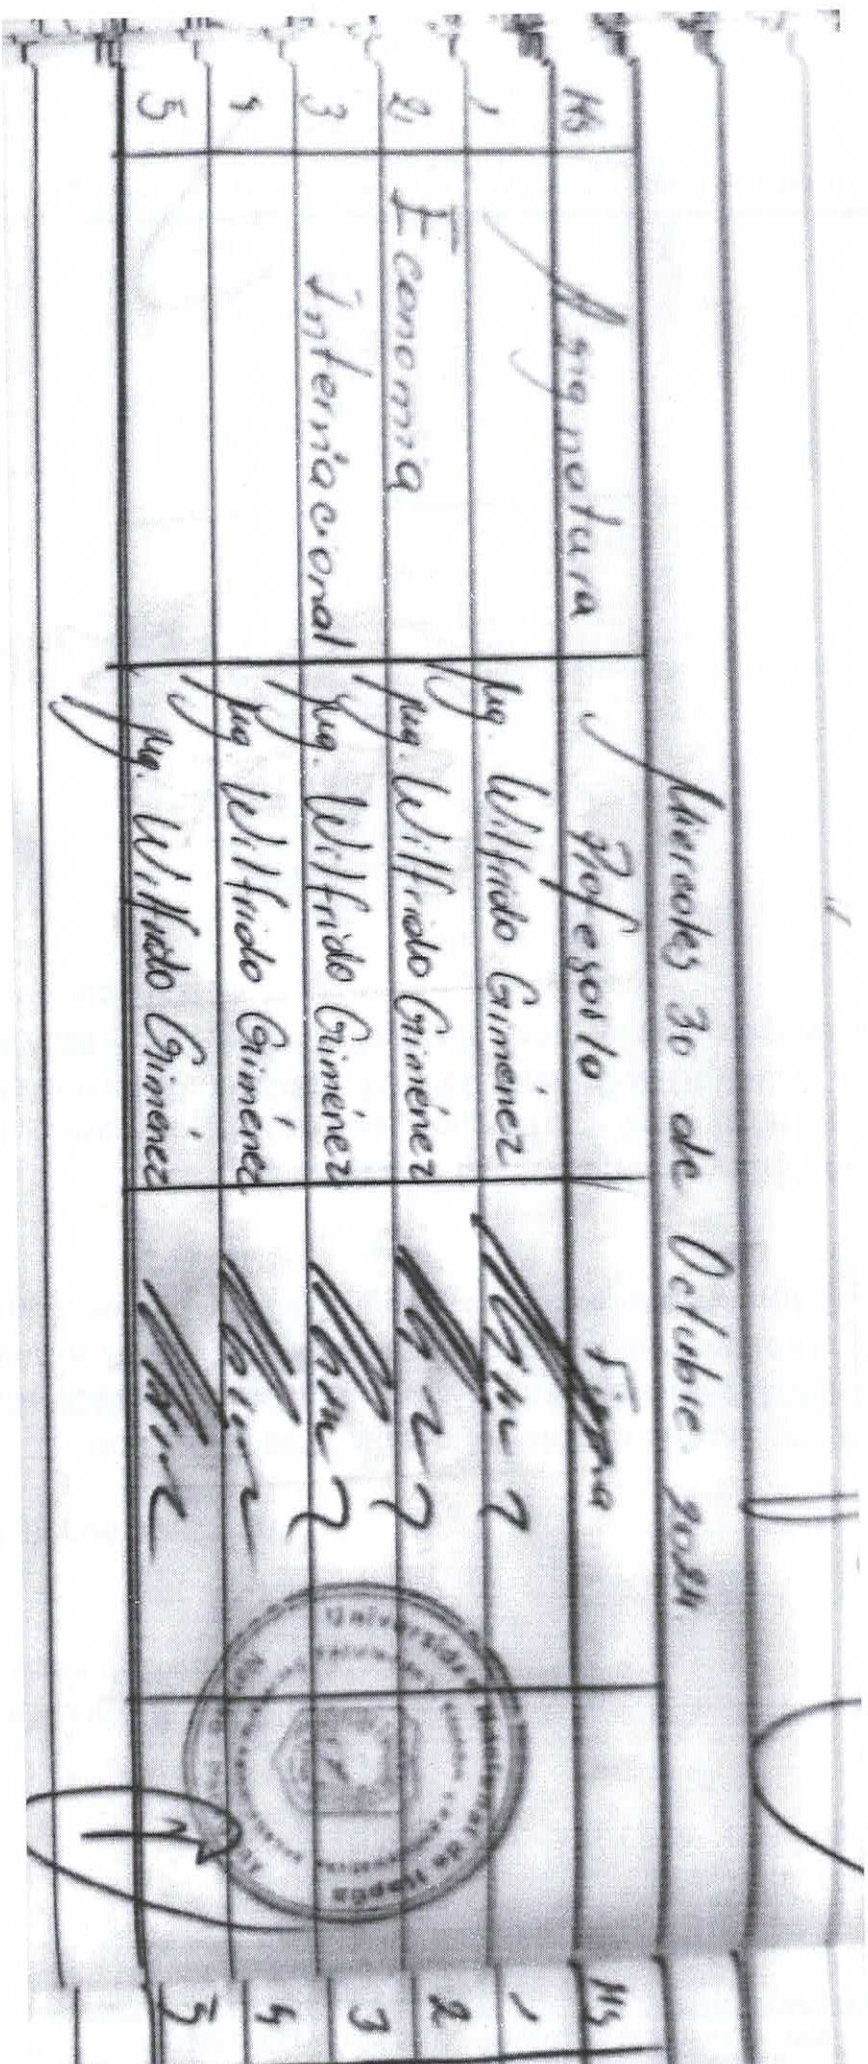 Miercoles 30 de Octubre 2024
Hs Asignatura Profesor/a Firma Hs
1 Mg. Wilfrido Giménez 1
2 Economia Mg. Wilfrido Giménez 2
3 Internacional Mg. Wilfrido Giménez 3
4 Mg. Wilfrido Giménez 4
5 Mg. Wilfrido Giménez 5
Universidad Nacional de Itapúa